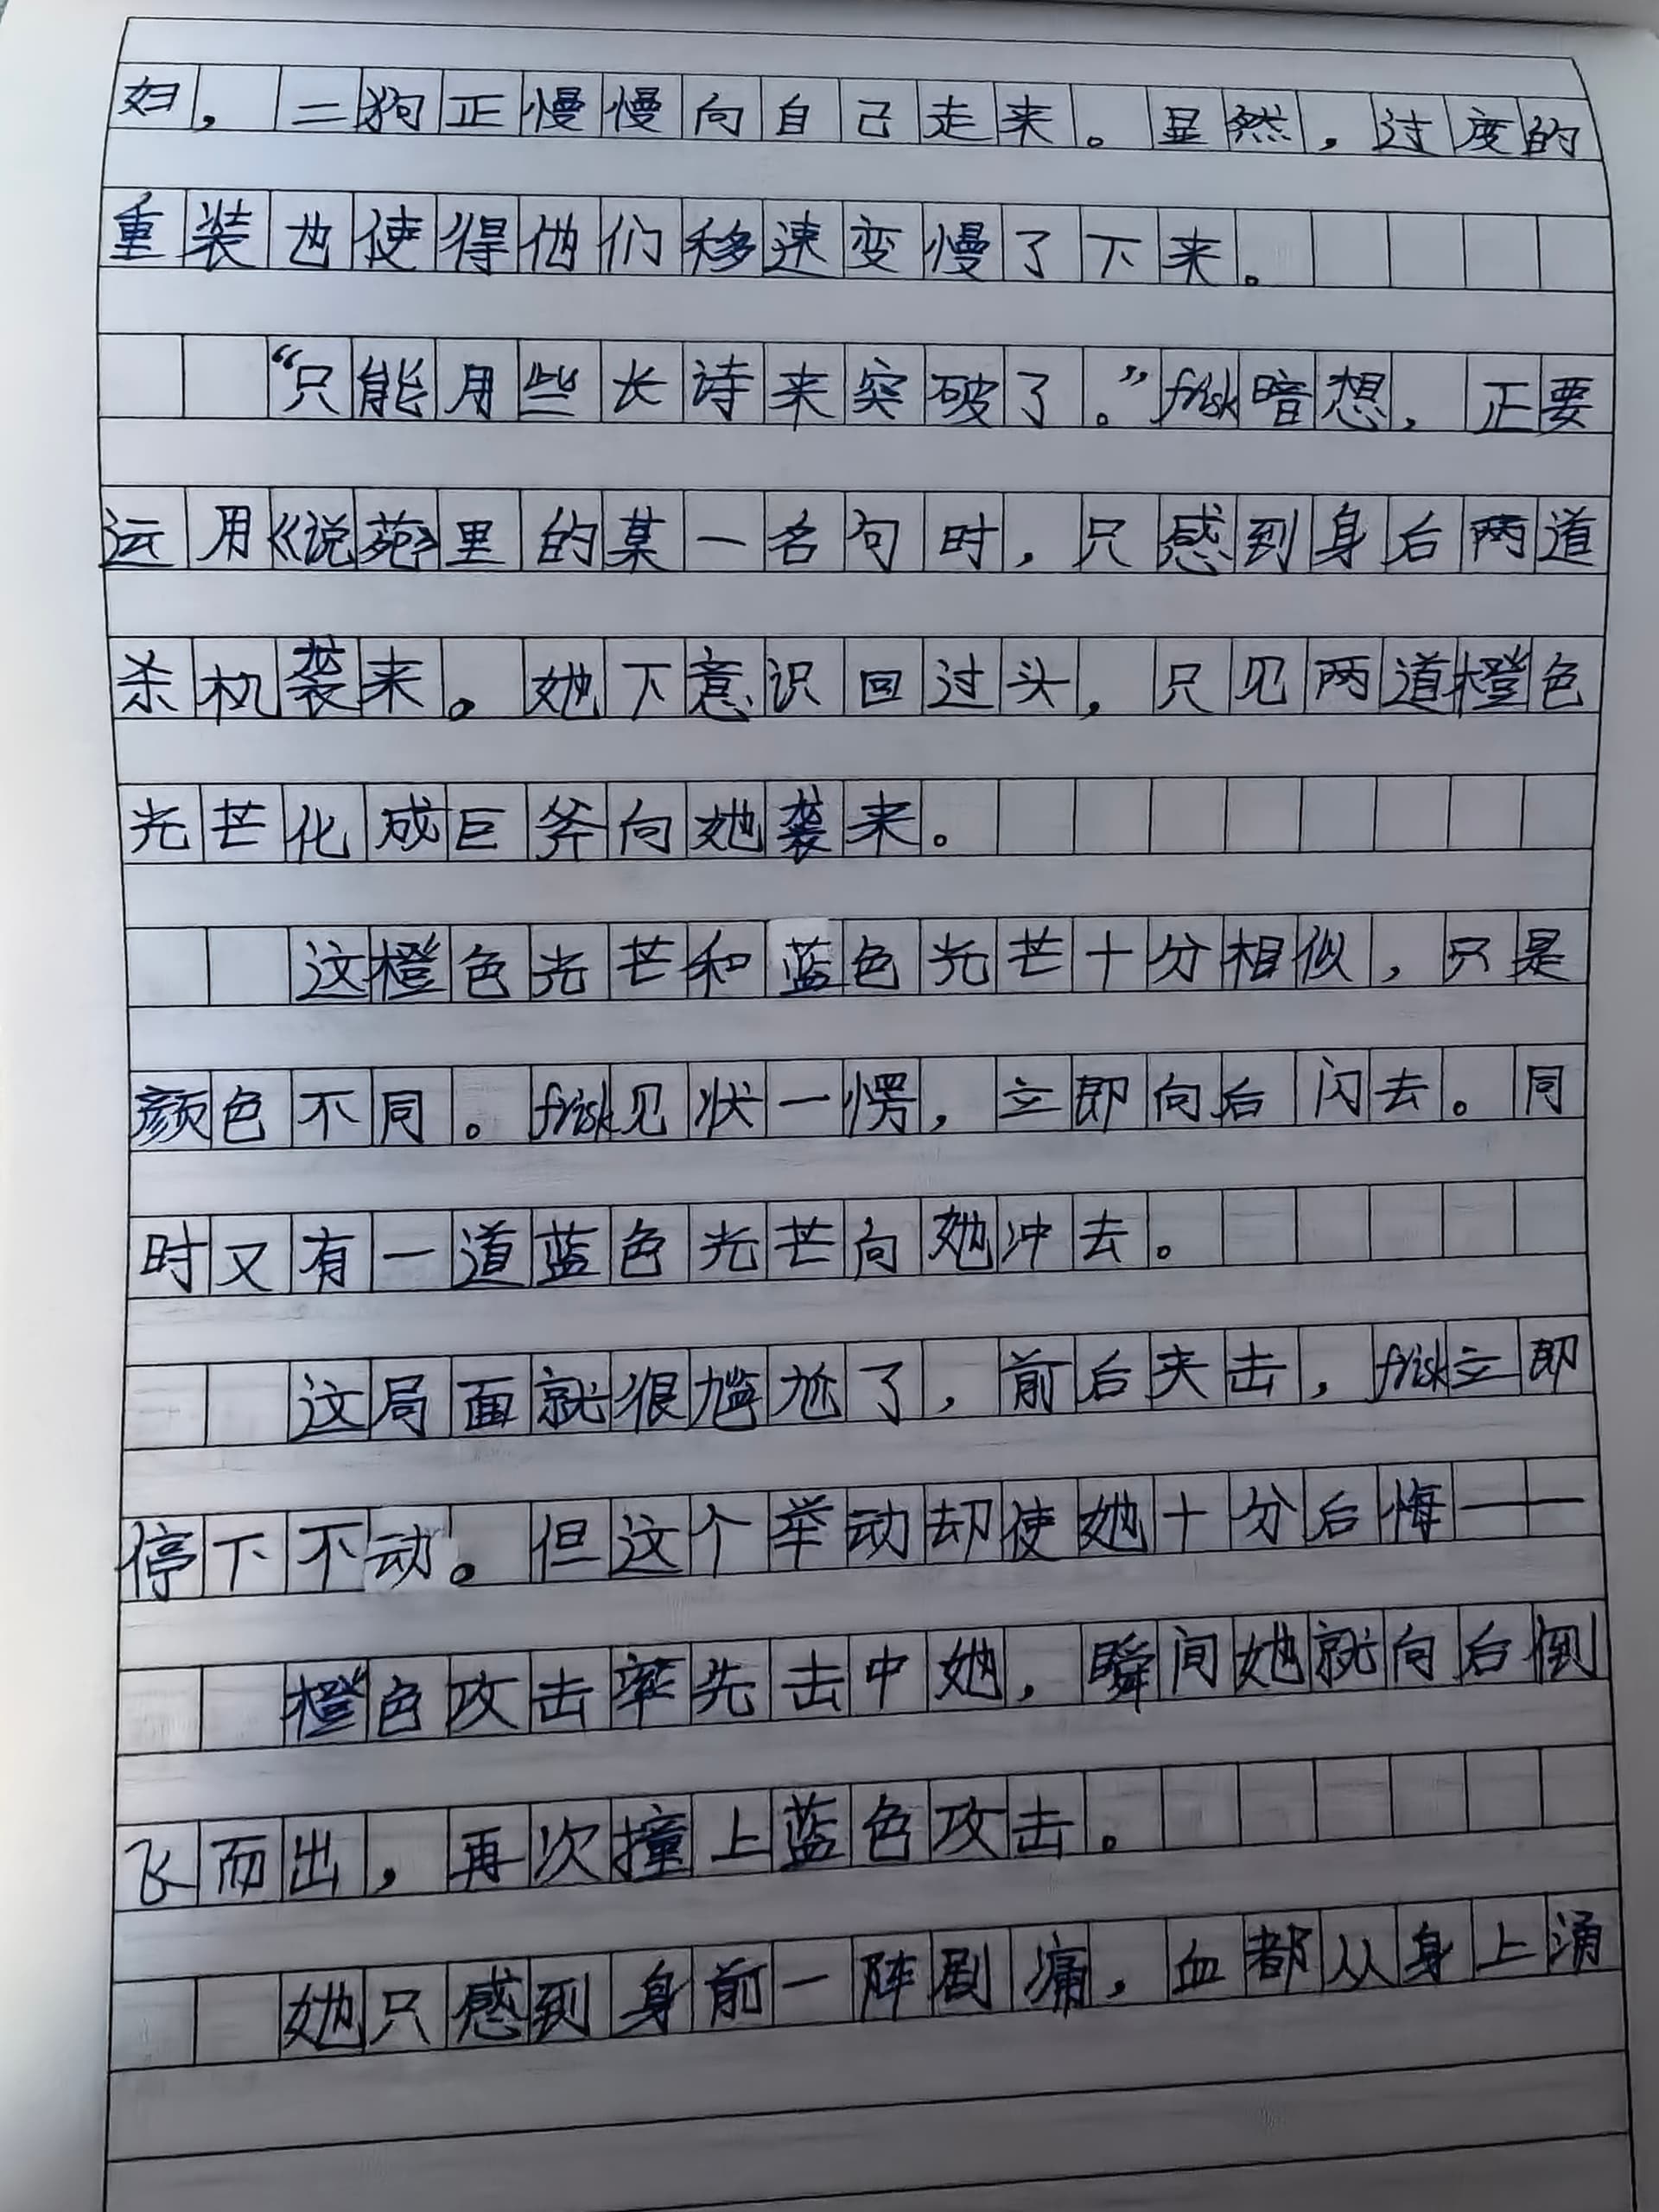 妇，二狗正慢慢向自己走来。显然，过度的
重装也使得他们移速变慢了下来。
“只能用些长诗来突破了。”frisk暗想，正要
运用《说苑》里的某一名句时，只感到身后两道
杀机袭来。她下意识回过头，只见两道橙色
光芒化成巨斧向她袭来。
这橙色光芒和蓝色光芒十分相似，只是
颜色不同。frisk见状一愣，立即向后闪去。同
时又有一道蓝色光芒向她冲去。
这局面就很尴尬了，前后夹击，frisk立即
停下不动。但这个举动却使她十分后悔——
橙色攻击率先击中她，瞬间她就向后倒
飞而出，再次撞上蓝色攻击。
她只感到身前一阵剧痛，血都从身上涌